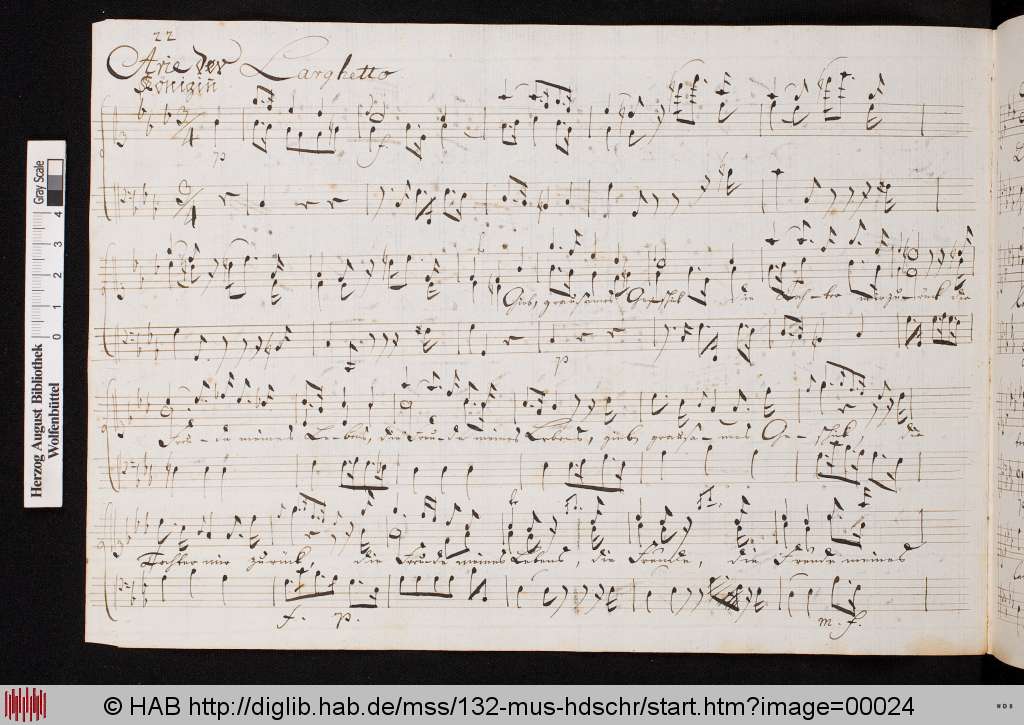 22
Arie der Larghetto
Königin̄
3/4
p
f
3/4
Gieb, grausames Geschik die Tochter mir zurük die
p
Freu-de meines Lebens, die Freu-de meines Lebens, gieb, grausa-mes Ge-schik, die
Tochter mir zurück, die Freude meines Lebens, die Freude, die Freude meines
f. p. m. f.
Herzog August Bibliothek
Wolfenbüttel
0 1 2 3 4
Gray Scale
© HAB http://diglib.hab.de/mss/132-mus-hdschr/start.htm?image=00024